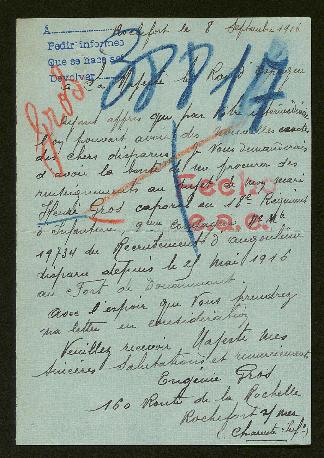 Rochefort le 8 Septembre 1916
A
Pedir informes
Que se hace saber
Devolver
Gros
388 17
A Sa Majesté le Roi d'Espagne
Ayant appris que par votre intermédiaire
l'on pouvait avoir des nouvelles exactes
des chers disparus. Je Vous demanderais
d'avoir la bonté de me procurer des
renseignements au sujet de mon mari
Henri Gros caporal au 18e Régiment
d'Infanterie,
19734 du Recrutement d'Angoulême
disparu depuis le 25 mai 1916
au Fort de Douaumont
Fecho
e.a.c.
Avec l'espoir que Vous prendrez
ma lettre en considération
Veuillez recevoir, Majesté mes
sincères Salutations et remerciement
Eugénie Gros
160 Route de la Rochelle
Rochefort s/mer
(Charente Inf.)